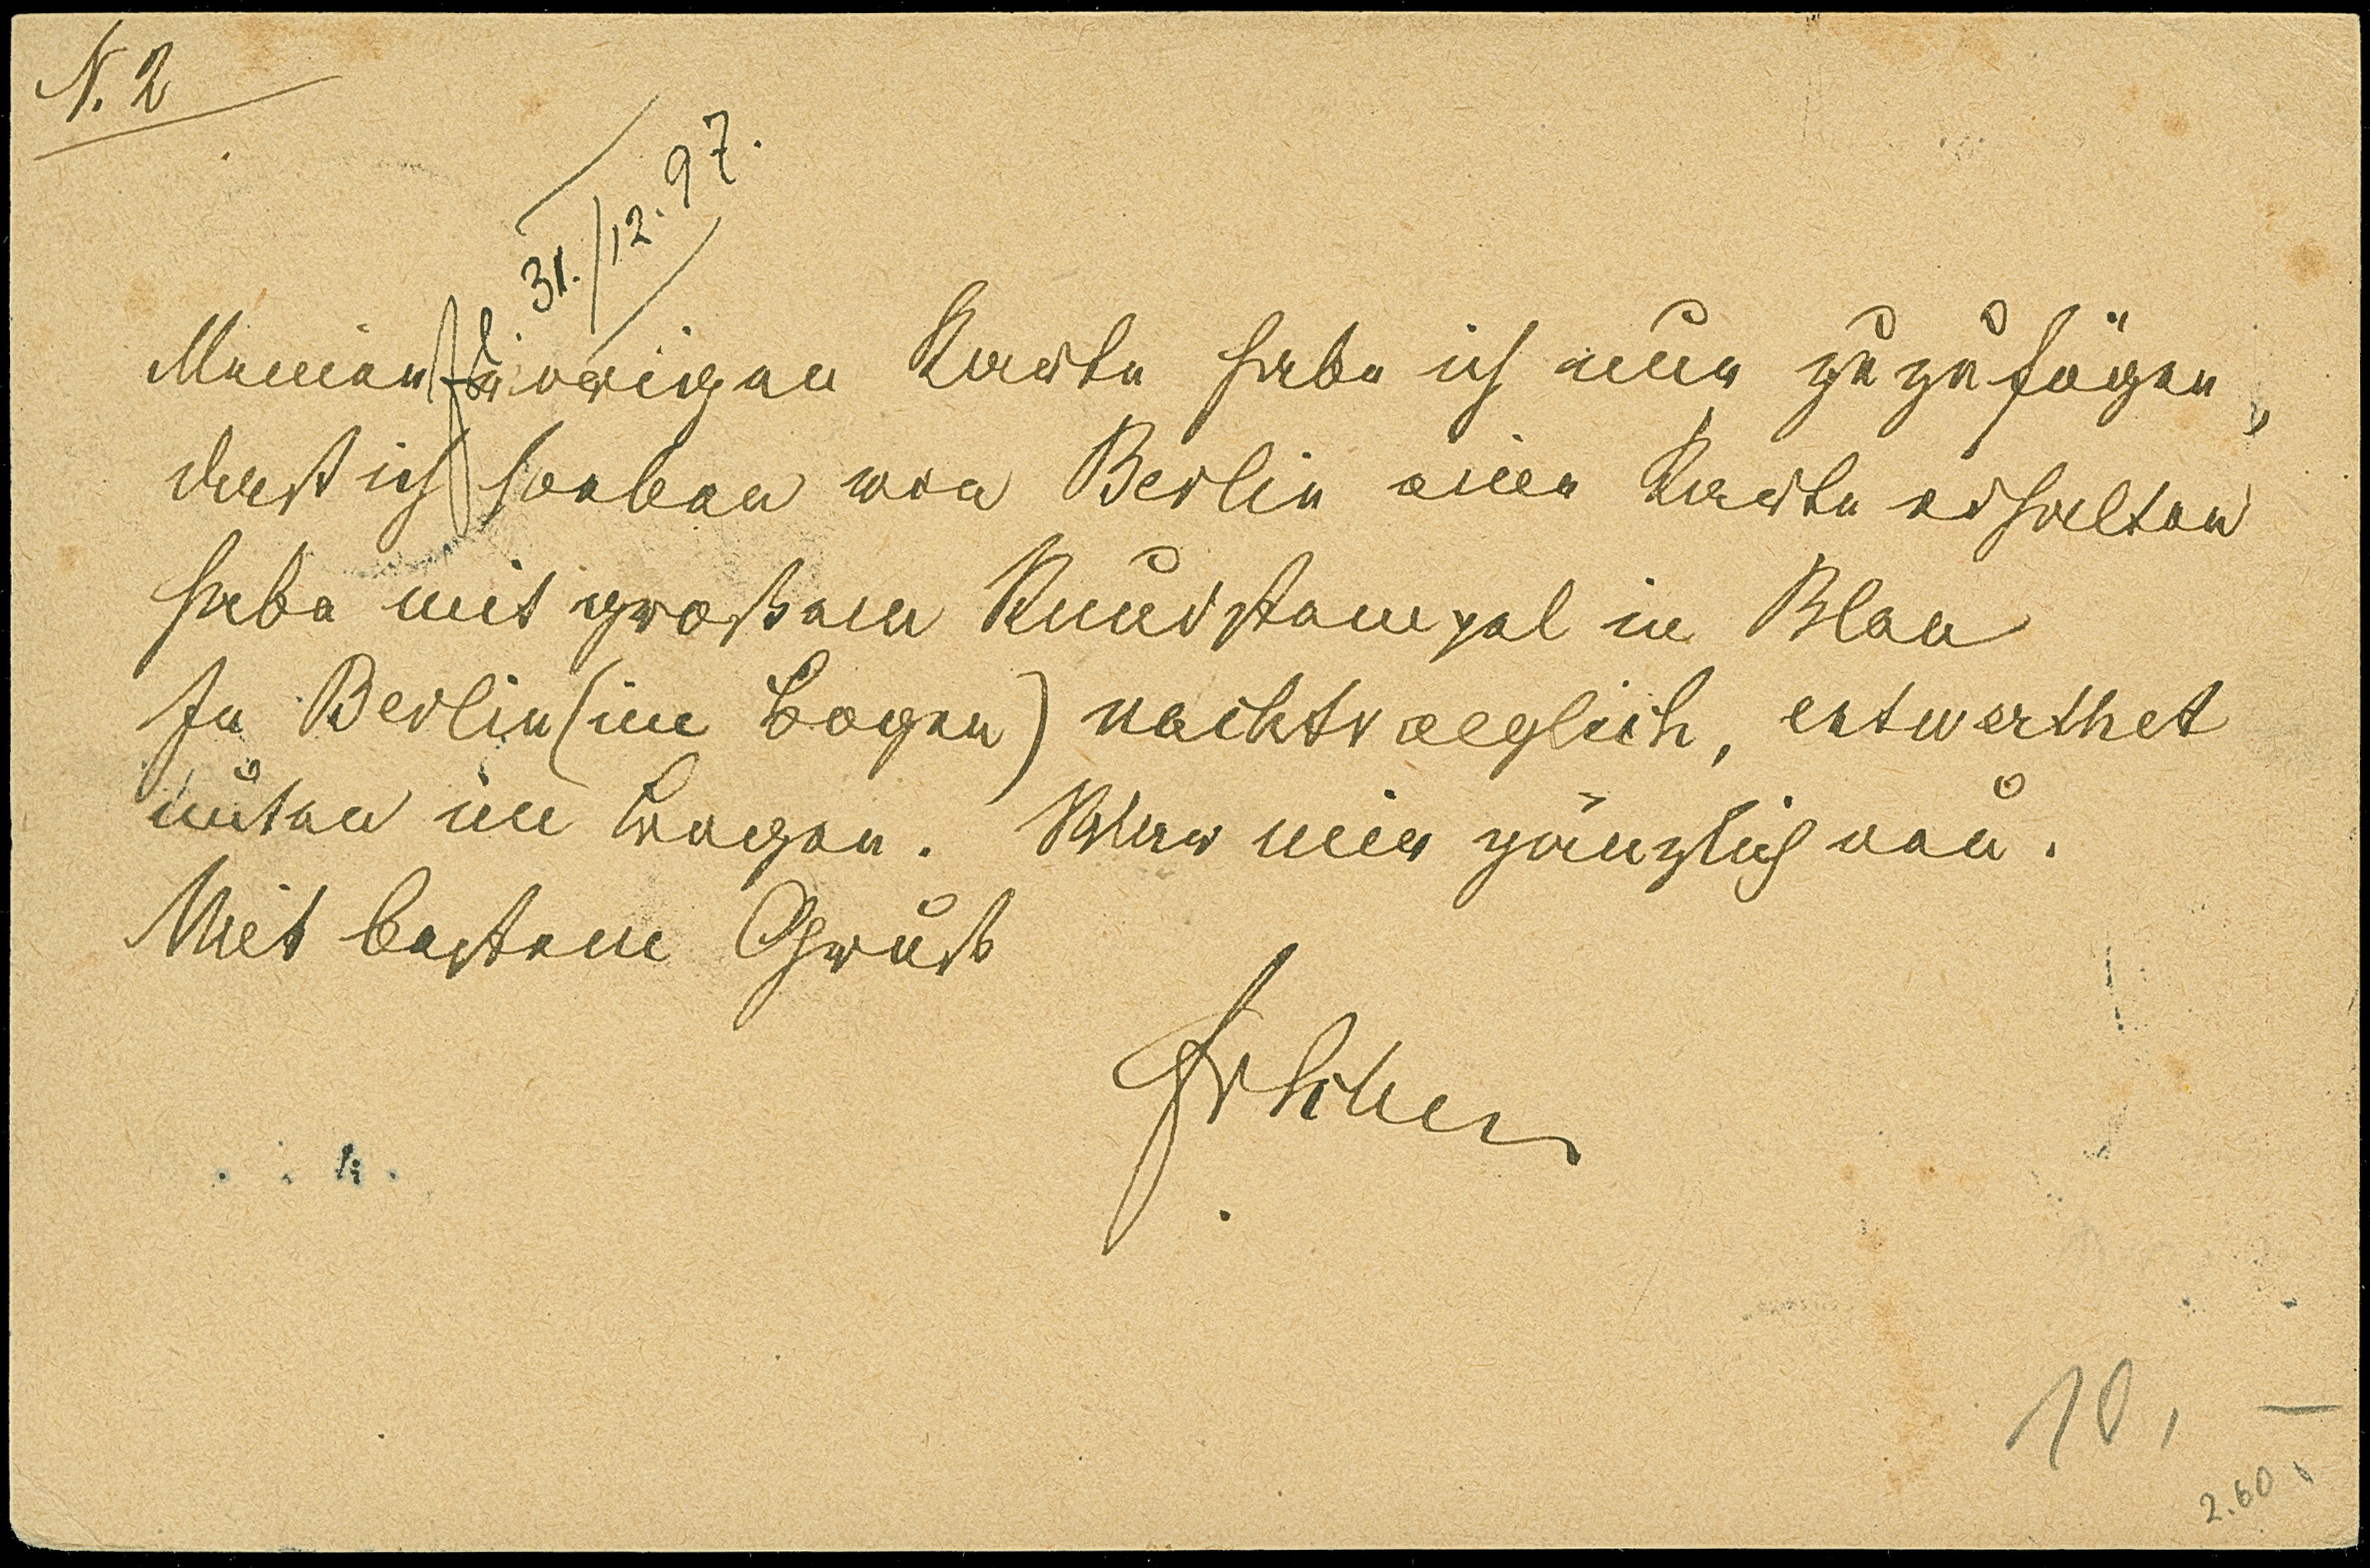 N. 2
31./12. 97.
Meiner vorigen Karte habe ich nur zuzufügen,
daß ich soeben von Berlin eine Karte erhalten
habe mit großem Rundstempel in Blau
In Berlin (im Bogen) nachtraeglich, entwerthet
unten im Bogen. War mir gänzlich neu.
Mit bestem Gruß
10, —
2.60